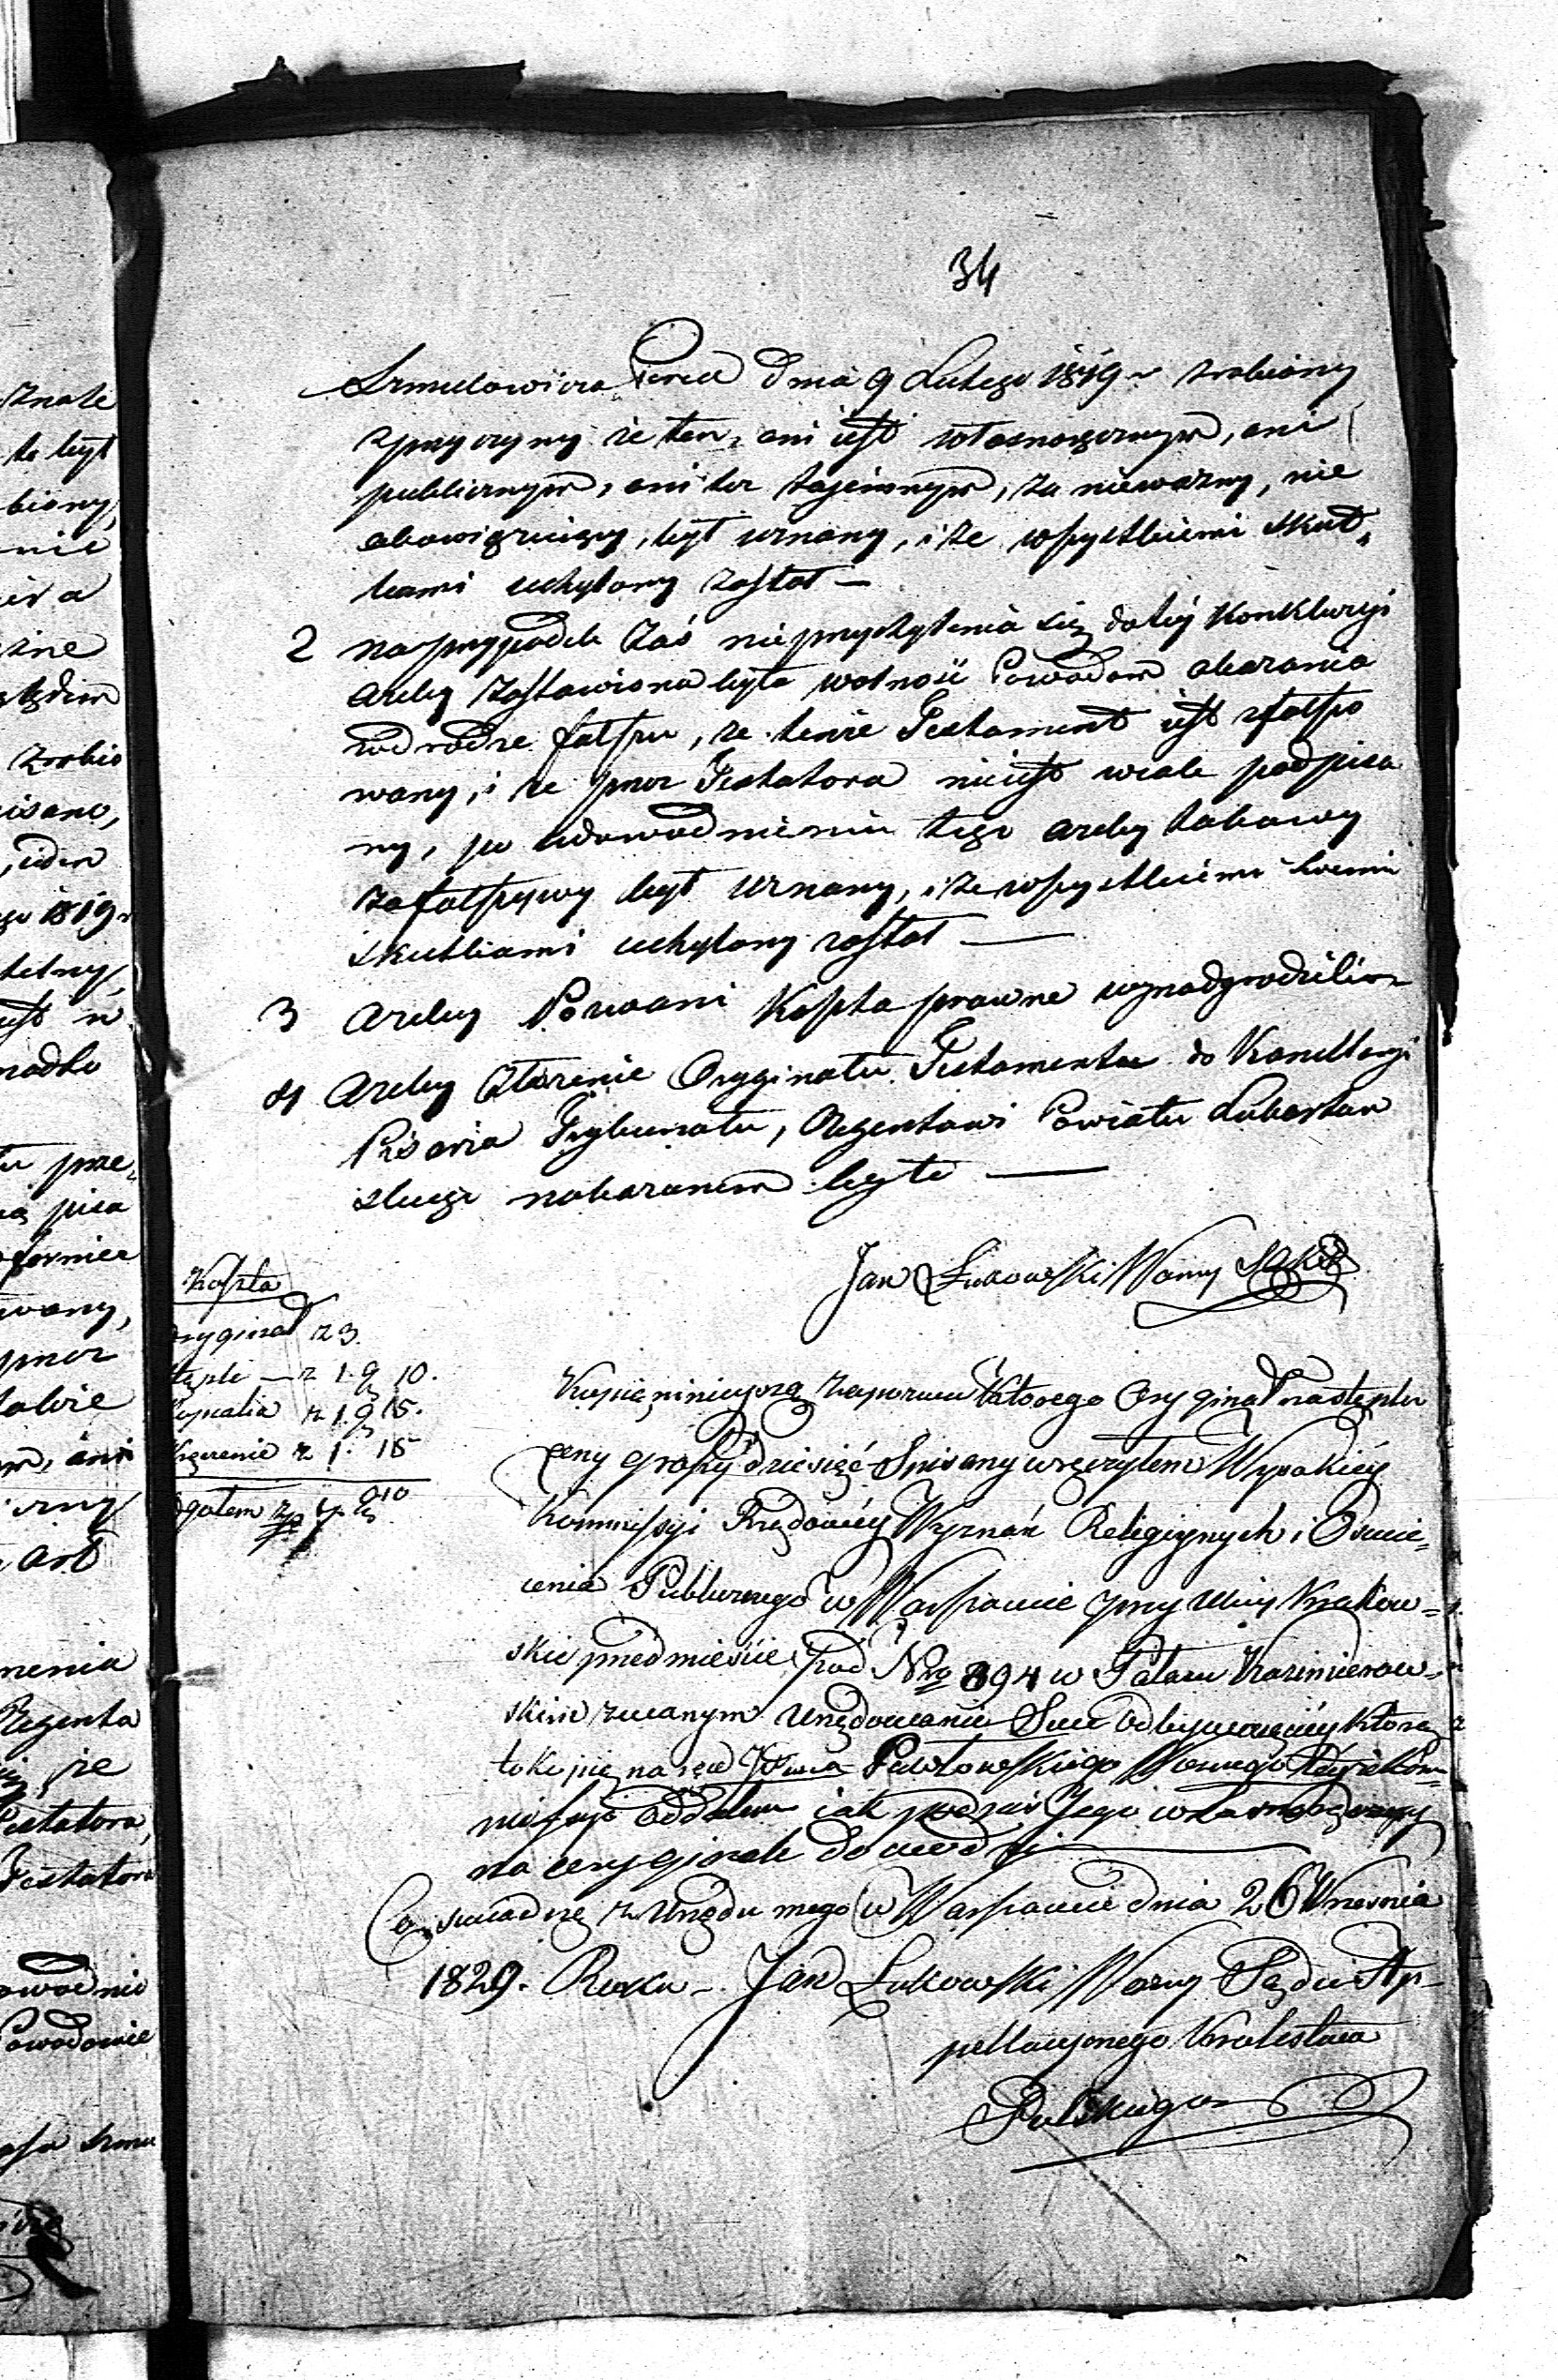 34
Szmulowicza Perca dnia 9 Lutego 1819 r zrobiony
zprzyczyny że ten, ani iest własnoręcznym, ani
publicznym, ani też tajemnym, za nieważny, nie
obowięzuiący, był uznany, i ze wszystkiemi skut„
kami uchylony został —
2 na przypadek zaś nieprzychylenia się do téj Konkluzyi
ażeby zostawiona była wolność Powodom okazania
w drodze fałszu, że tenże Testament iest zfałszo
wany, i że przez Testatora nieiest wcale podpisa
ny, po udowodnieniu tego ażeby takowy
za fałszywy był uznany, i ze wszystkiemi swemi
skutkami uchylony został —
3 Ażeby Pozwani Koszta prawne wynadgrodzili
4 Ażeby złożenie Oryginału Testamentu do Kancellaryi
Pisarza Trybunału, Rejentowi Powiatu Lubartow
skiego nakazanem było —
Jan Łukowski Wozny S.A.K.P.
Koszta
Oryginał z 3.
stępli — z 1. g 10.
Kopialia z 1. g 15.
Wręczenie z 1. 15
Ogołem zp 7. g 10
Kopię niniejszą zapozwu którego Oryginał na stęplu
ceny groszy dziesięć spisany wręczyłem Wysokiéy
Kommissyi Rządowéy Wyznań Religijnych i Oswie„
cenia Publicznego w Warszawie przy ulicy Krakow„
skie przedmieście pod Nro 394 w Pałacu Kazimierow„
skim zwanym Urzędowanie Swe odbywaiącéy którą
to kopię na ręce Pawłowskiego Woznego téyże Kom„
missyi oddałem iak podpis Jego własnoręczny
na oryginale dowodzi —
Co swiadczę z Urzędu mego w Warszawie dnia 26 Wrzesnia
1829. Roku. Jan Łukowski Wozny Sądu Ap„
pellacyjnego Krolestwa
Polskiego